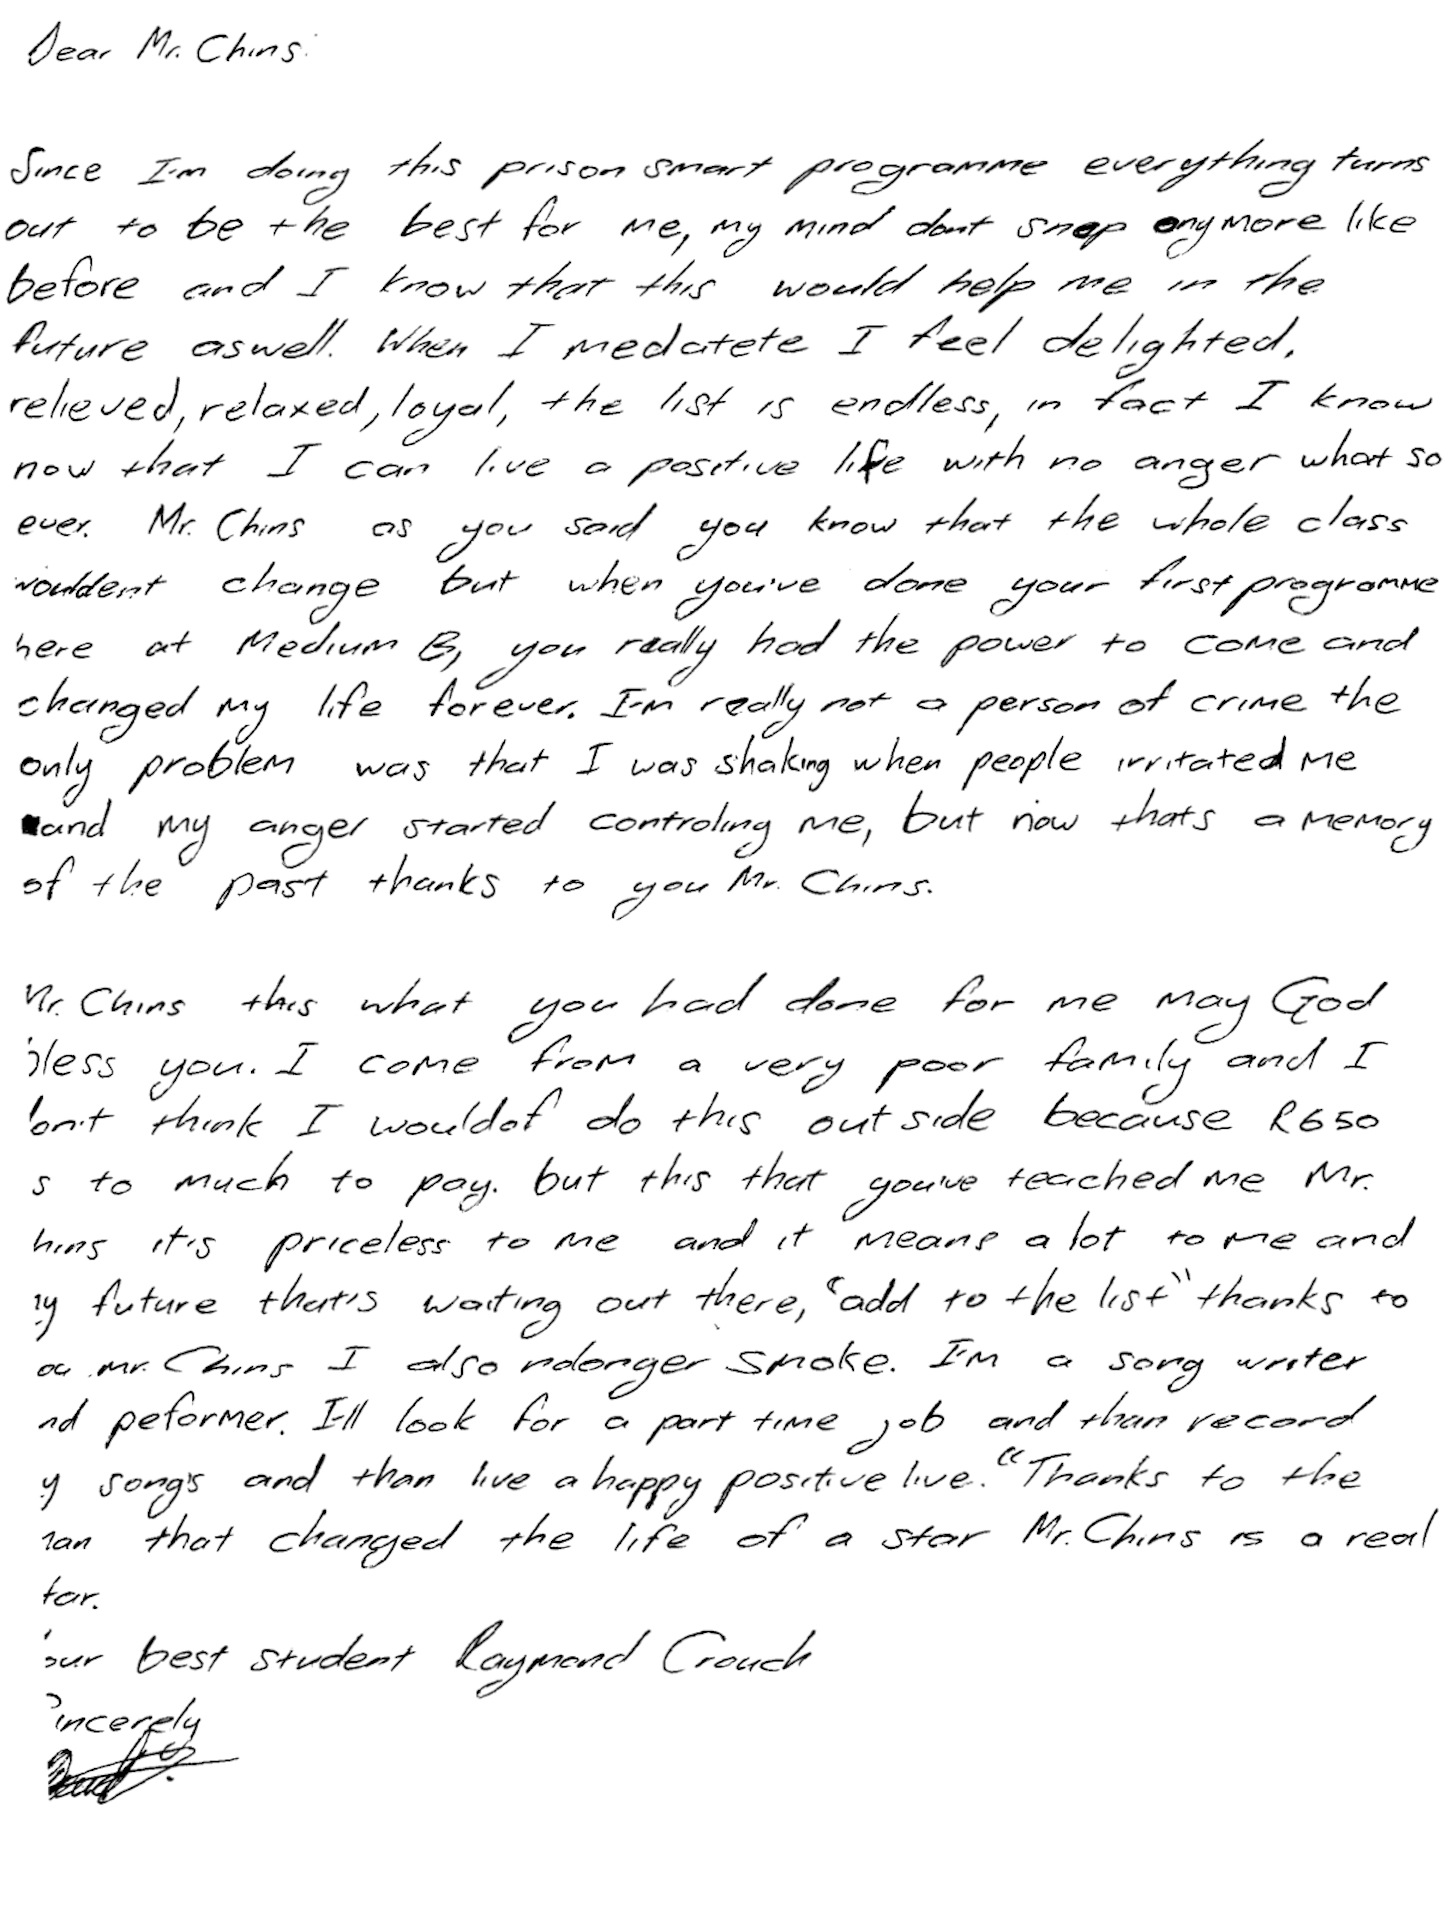 Dear Mr. Chins:
Since I'm doing this prison smart programme everything turns
out to be the best for me, my mind dont snap anymore like
before and I know that this would help me in the
future aswell. When I medatete I feel delighted,
relieved, relaxed, loyal, the list is endless, in fact I know
now that I can live a positive life with no anger what so
ever. Mr. Chins as you said you know that the whole class
wouldent change but when you've done your first programme
here at Medium B, you really had the power to come and
changed my life forever. I'm really not a person of crime the
only problem was that I was shaking when people irritated me
and my anger started controling me, but now thats a memory
of the past thanks to you Mr. Chins.
Mr. Chins this what you had done for me may God
bless you. I come from a very poor family and I
on't think I wouldof do this out side because R650
s to much to pay. but this that you've teached me Mr.
hins it's priceless to me and it means a lot to me and
y future that's waiting out there, "add to the list" thanks to
ou mr. Chins I also nolonger smoke. I'm a song writer
nd peformer. I'll look for a part time job and than record
y song's and than live a happy positive live. "Thanks to the
man that changed the life of a star Mr. Chins is a real
tar.
our best student Raymond Crouch
Sincerely